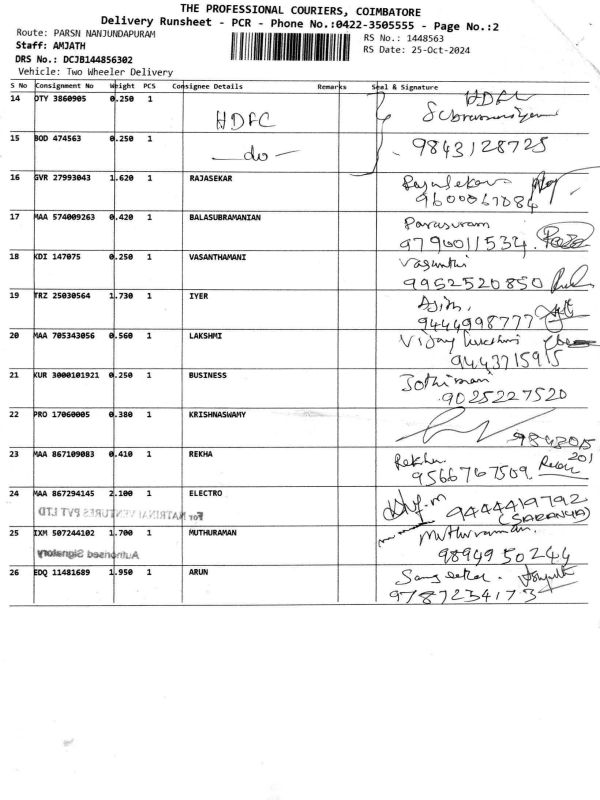 THE PROFESSIONAL COURIERS, COIMBATORE
Delivery Runsheet - PCR - Phone No.:0422-3505555 - Page No.:2
Route: PARSN NANJUNDAPURAM
RS No.: 1448563
Staff: AMJATH
RS Date: 25-Oct-2024
DRS No.: DCJB144856302
Vehicle: Two Wheeler Delivery
S No Consignment No Weight PCS Consignee Details Remarks Seal & Signature
14 OTY 3860905 0.250 1 HDFC HDFC
15 BOD 474563 0.250 1 — do — 9843128725
16 GVR 27993043 1.620 1 RAJASEKAR Rajasekar
9600067084
17 MAA 574009263 0.420 1 BALASUBRAMANIAN Parasuram
9790011534
18 KDI 147075 0.250 1 VASANTHAMANI Vasanthi
9952520850
19 TRZ 25030564 1.730 1 IYER
9444998777
20 MAA 705343056 0.560 1 LAKSHMI Vijay Lakshmi
9443715915
21 KUR 3000101921 0.250 1 BUSINESS Jothimani
9025227520
22 PRO 17060005 0.380 1 KRISHNASWAMY
9842015
201
23 MAA 867109083 0.410 1 REKHA Rekha
9566767509
24 MAA 867294145 2.100 1 ELECTRO
9444419792
(SARANYA)
For NATRINAI VENTURES PVT LTD
25 IXM 507244102 1.700 1 MUTHURAMAN Muthuraman
9894950244
Authorised Signatory
26 EDQ 11481689 1.950 1 ARUN Sangeetha
9787234173